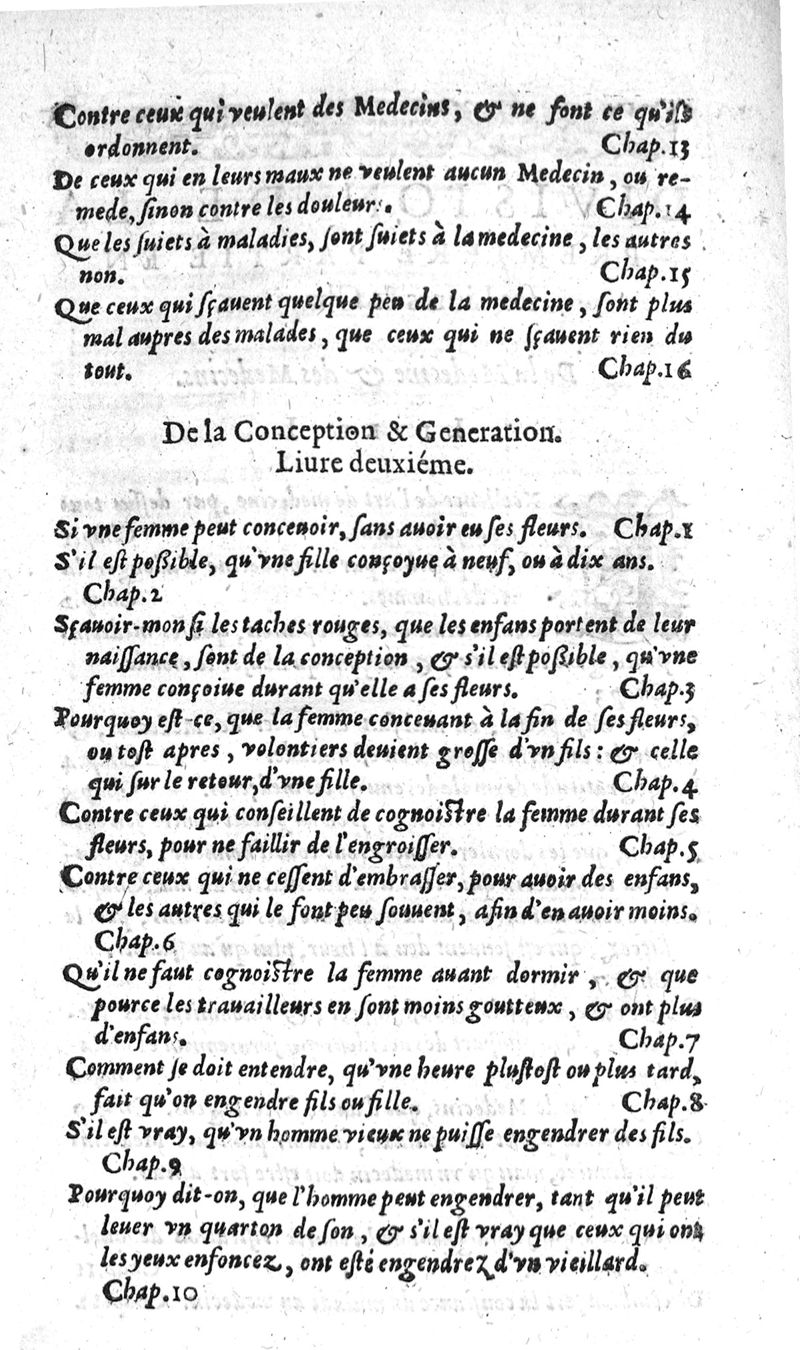 Contre ceux qui veulent des Medecins, & ne font ce qu'ils
ordonnent. Chap.13
De ceux qui en leurs maux ne veulent aucun Medecin, ou re-
mede, ſinon contre les douleurs. Chap.14
Que les ſuiets à maladies, ſont ſuiets à la medecine, les autres
non. Chap.15
Que ceux qui ſçauent quelque peu de la medecine, ſont plus
mal aupres des malades, que ceux qui ne ſçauent rien du
tout. Chap.16
De la Conception & Generation.
Liure deuxiéme.
Si vne femme peut conceuoir, ſans auoir eu ſes fleurs. Chap.1
S'il eſt poßible, qu'vne fille conçoyue à neuf, ou à dix ans.
Chap.2
Sçauoir-mon ſi les taches rouges, que les enfans portent de leur
naiſſance, ſont de la conception, & s'il eſt poßible, qu'vne
femme conçoiue durant qu'elle a ſes fleurs. Chap.3
Pourquoy eſt-ce, que la femme conceuant à la fin de ſes fleurs,
ou toſt apres, volontiers deuient groſſe d'vn fils: & celle
qui ſur le retour, d'vne fille. Chap.4
Contre ceux qui conſeillent de cognoiſtre la femme durant ſes
fleurs, pour ne faillir de l'engroiſſer. Chap.5
Contre ceux qui ne ceſſent d'embraſſer, pour auoir des enfans,
& les autres qui le font peu ſouuent, afin d'en auoir moins.
Chap.6
Qu'il ne faut cognoiſtre la femme auant dormir, & que
pource les trauailleurs en ſont moins goutteux, & ont plus
d'enfans. Chap.7
Comment ſe doit entendre, qu'vne heure pluſtoſt ou plus tard,
fait qu'on engendre fils ou fille. Chap.8
S'il eſt vray, qu'vn homme vieux ne puiſſe engendrer des fils.
Chap.9
Pourquoy dit-on, que l'homme peut engendrer, tant qu'il peut
leuer vn quarton de ſon, & s'il eſt vray que ceux qui ont
les yeux enfoncez, ont eſté engendrez d'vn vieillard.
Chap.10